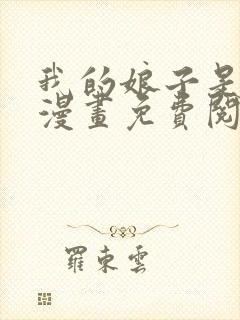 我的娘子是
漫畫免費閱
羅東雲